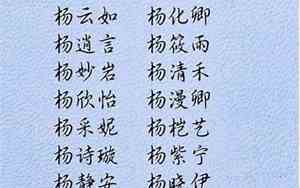 杨云如 杨化卿
杨逍言 杨筱雨
杨妙岩 杨清禾
杨欣怡 杨漫卿
杨采妮 杨恺艺
杨诗璇 杨紫宁
杨静安 杨晓伊